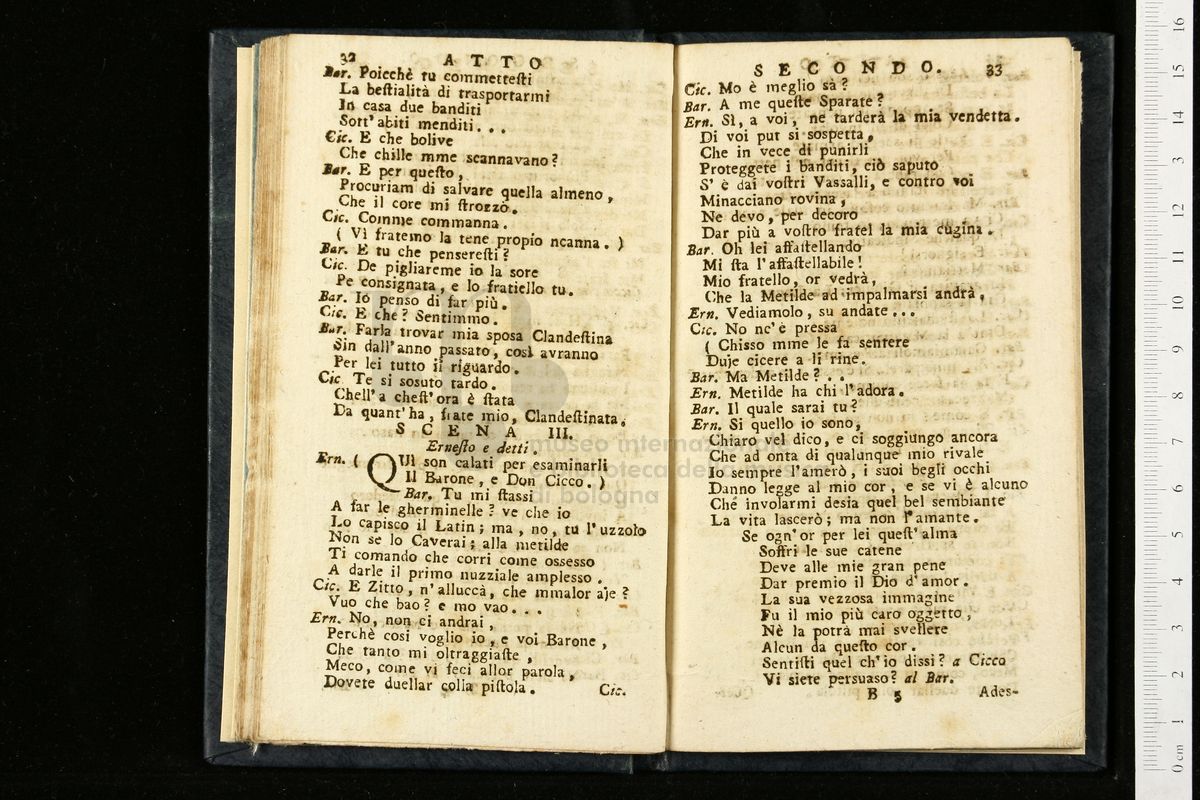 32 ATTO
Bar. Poicchè tu commettesti
La bestialità di trasportarmi
In casa due banditi
Sott' abiti menditi. . .
Cic. E che bolive
Che chille mme scannavano?
Bar. E per questo,
Procuriam di salvare quella almeno,
Che il core mi strozzò.
Cic. Comme commanna.
( Vì fratemo la tene propio ncanna. )
Bar. E tu che penseresti?
Cic. De pigliareme io la sore
Pe consignata, e lo fratiello tu.
Bar. Io penso di far più.
Cic. E che? Sentimmo.
Bar. Farla trovar mia sposa Clandestina
Sin dall' anno passato, così avranno
Per lei tutto il riguardo.
Cic Te si sosuto tardo.
Chell' a chest' ora è stata
Da quant' ha, frate mio, Clandestinata.
SCENA III.
Ernesto e detti.
Ern. ( QUI son calati per esaminarli
Il Barone, e Don Cicco. )
Bar. Tu mi stassi
A far le gherminelle? ve che io
Lo capisco il Latin; ma, no, tu l' uzzolo
Non se lo Caverai; alla metilde
Ti comando che corri come ossesso
A darle il primo nuzziale amplesso.
Cic. E Zitto, n' alluccà, che mmalor aje?
Vuo che bao? e mo vao. . .
Ern. No, non ci andrai,
Perchè così voglio io, e voi Barone,
Che tanto mi oltraggiaste,
Meco, come vi feci allor parola,
Dovete duellar colla pistola.
Cic.
SECONDO. 33
Cic. Mo è meglio sà?
Bar. A me queste Sparate?
Ern. Sì, a voi, ne tarderà la mia vendetta.
Di voi put si sospetta,
Che in vece di punirli
Proteggete i banditi, ciò saputo
S' è dai vostri Vassalli, e contro voi
Minacciano rovina,
Ne devo, per decoro
Dar più a vostro fratel la mia cugina.
Bar. Oh lei affastellando
Mi sta l' affastellabile!
Mio fratello, or vedrà,
Che la Metilde ad impalmarsi andrà,
Ern. Vediamolo, su andate...
Cic. No nc' è pressa
( Chisso mme le fa sentere
Duje cicere a li rine.
Bar. Ma Metilde? . .
Ern. Metilde ha chi l' adora.
Bar. Il quale sarai tu?
Ern. Si quello io sono,
Chiaro vel dico, e ci soggiungo ancora
Che ad onta di qualunque mio rivale
Io sempre l' amerò, i suoi begli occhi
Danno legge al mio cor, e se vi è alcuno
Ché involarmi desia quel bel sembiante
La vita lascerò; ma non l' amante.
Se ogn' or per lei quest' alma
Soffri le sue catene
Deve alle mie gran pene
Dar premio il Dio d' amor.
La sua vezzosa immagine
Fu il mio più caro oggetto,
Nè la potrà mai svellere
Alcun da questo cor.
Sentisti quel ch' io dissi? a Cicco
Vi siete persuaso? al Bar.
B 5 Ades-